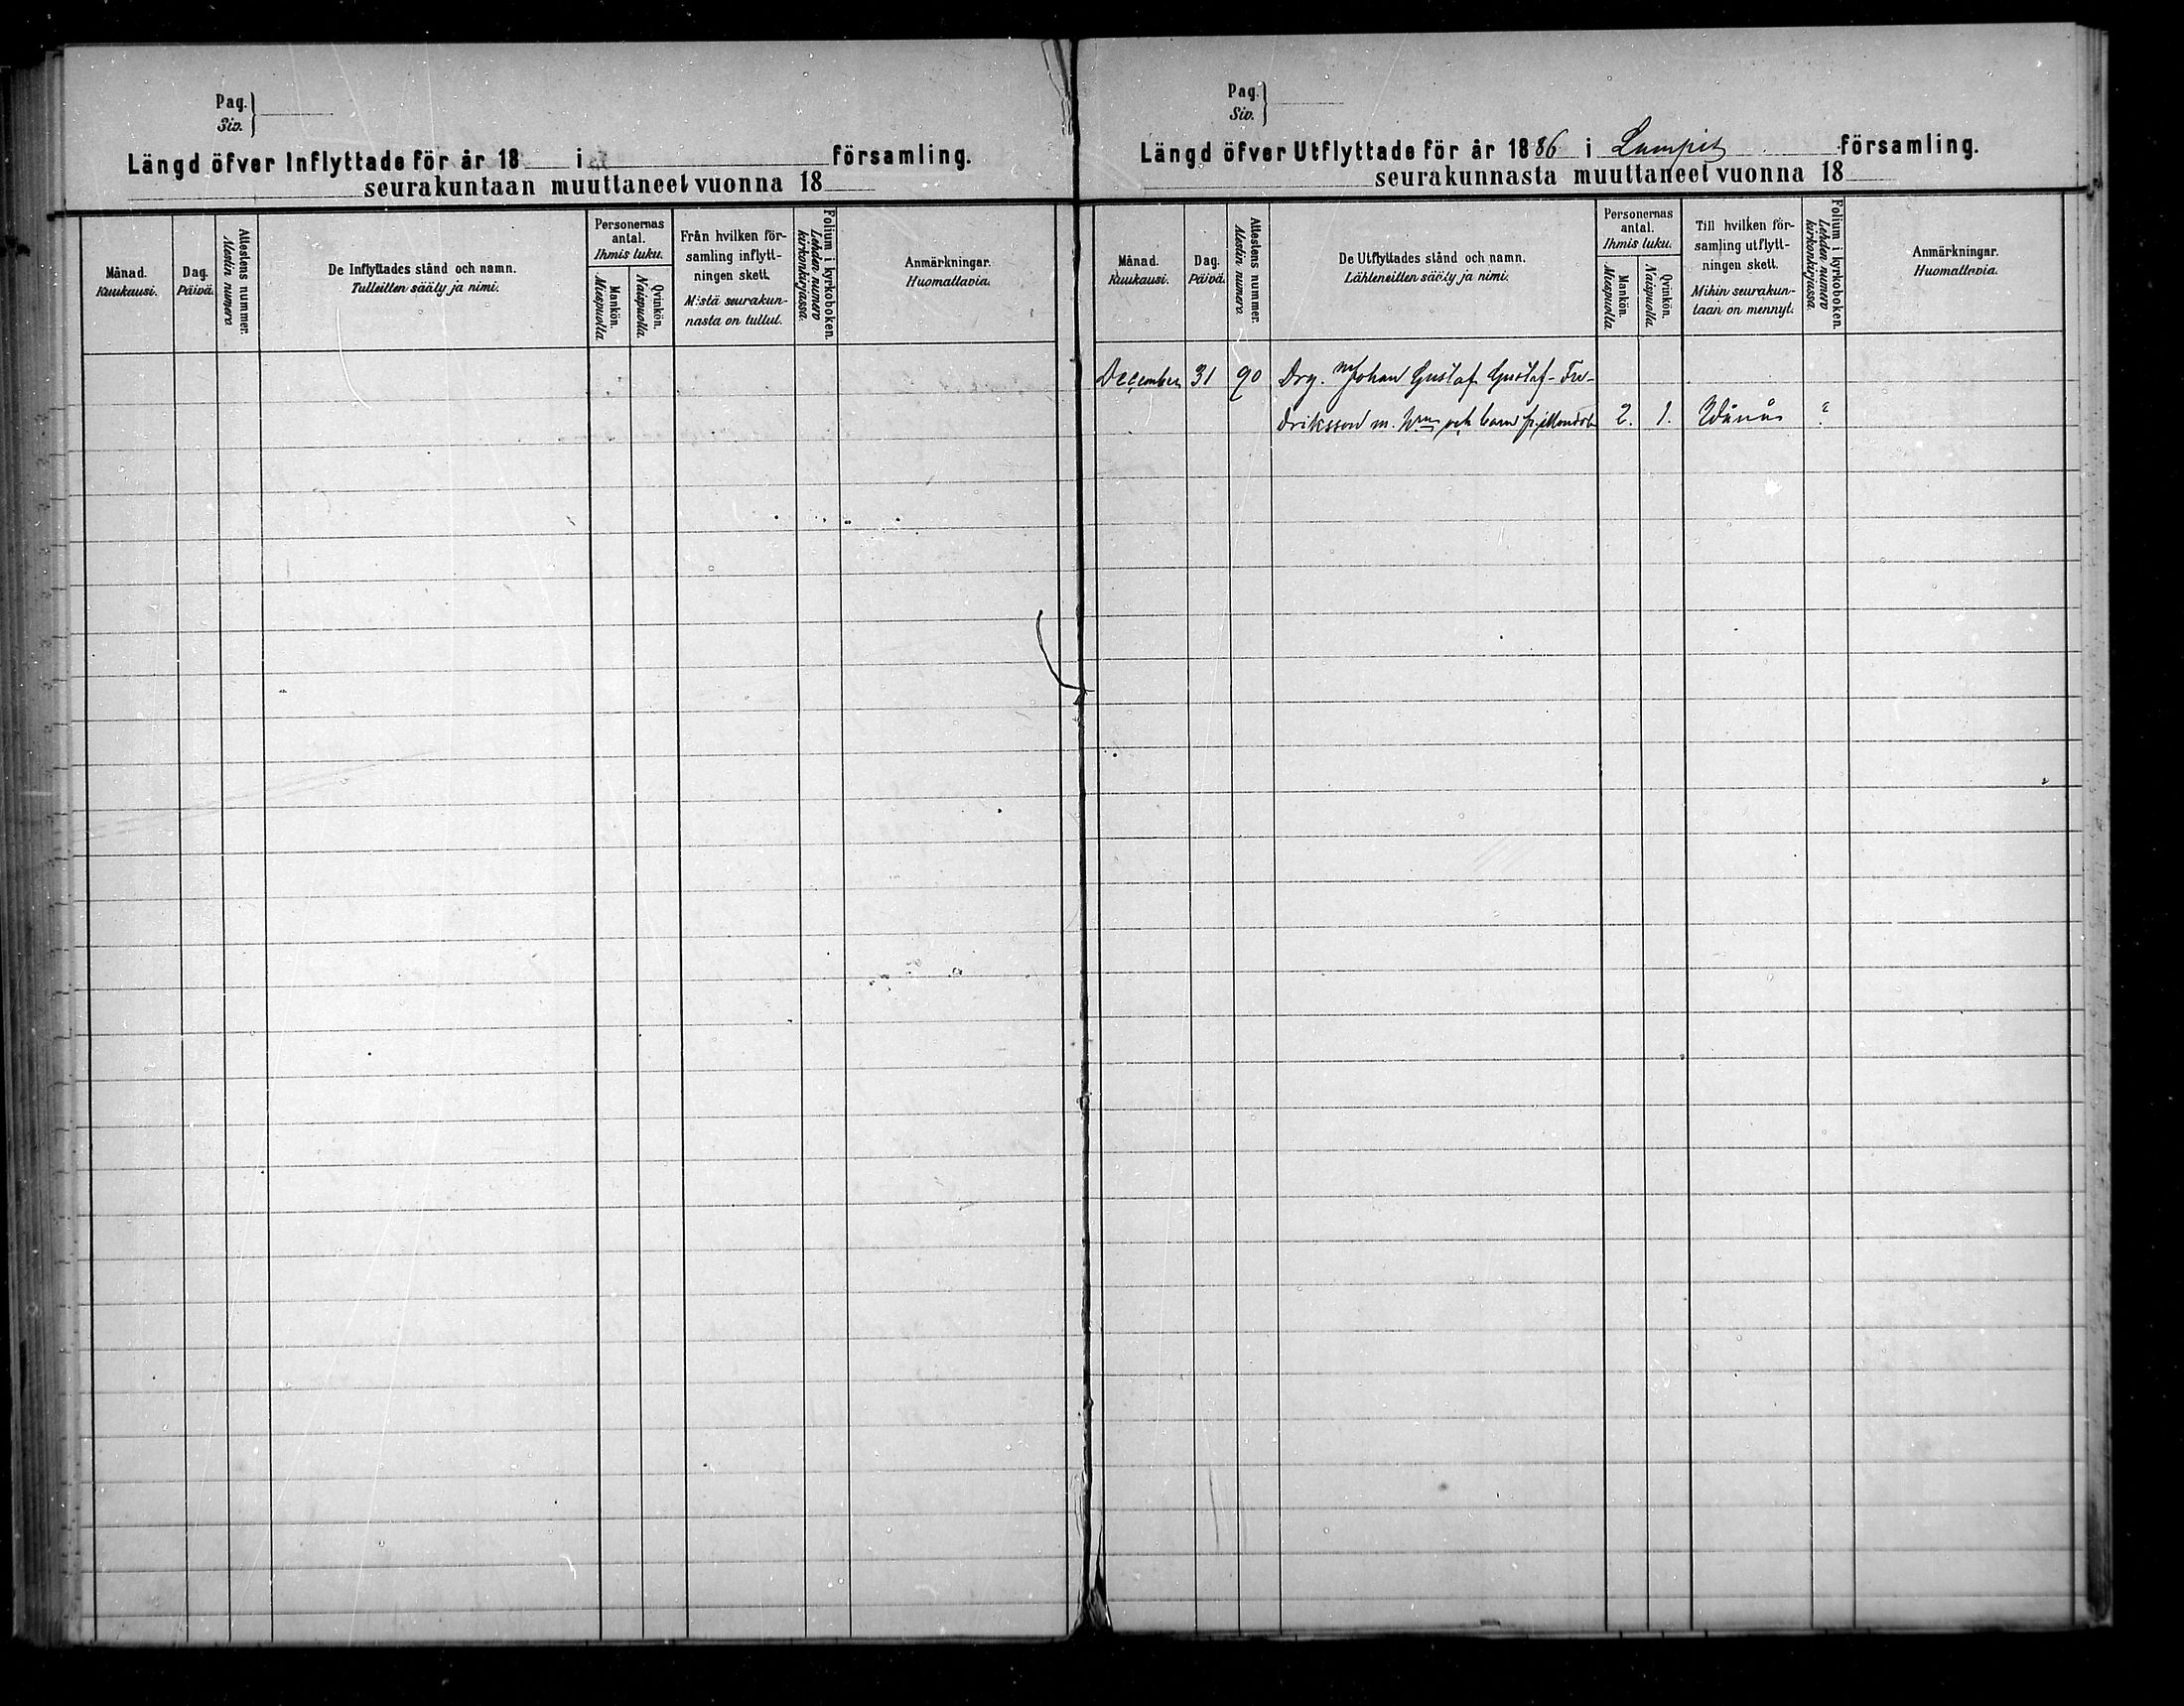 Pag.
Siv.
Längd öfver Inflyttade för år 18 i församling.
seurakuntaan muuttaneet vuonna 18
Månad.
Kuukausi.
Dag.
Päivä.
Attestens nummer.
Alestin numero.
De Inflyttades stånd och namn.
Tulleitten sääty ja nimi.
Personernas
antal.
Ihmis luku.
Mankön.
Miespuolia
Qvinkön.
Naispuolia.
Från hvilken för-
samling inflytt-
ningen skett.
Mistä seurakun-
nasta on tullut.
Folium i kyrkoboken.
Lehden numero
kirkonkirjassa.
Anmärkningar.
Huomattavia.
Pag.
Siv.
Längd öfver Utflyttade för år 1886 i församling.
seurakunnasta muuttaneet vuonna 18
Månad.
Kuukausi.
Dag.
Päivä.
Attestens nummer.
Alestin numero.
De Utflyttades stånd och namn.
Lähteneitten sääty ja nimi.
Personernas
antal.
Ihmis luku.
Mankön.
Miespuolia
Qvinkön.
Naispuolia.
Till hvilken för-
samling utflytt-
ningen skett.
Mihin seurakun-
taan on mennyt.
Folium i kyrkoboken.
Lehden numero
kirkonkirjassa.
Anmärkningar.
Huomattavia.
December 31 90 Drg. Johan Gustaf Gustaf-Fre-
driksson m. och barn 2. 1. Wånå ?